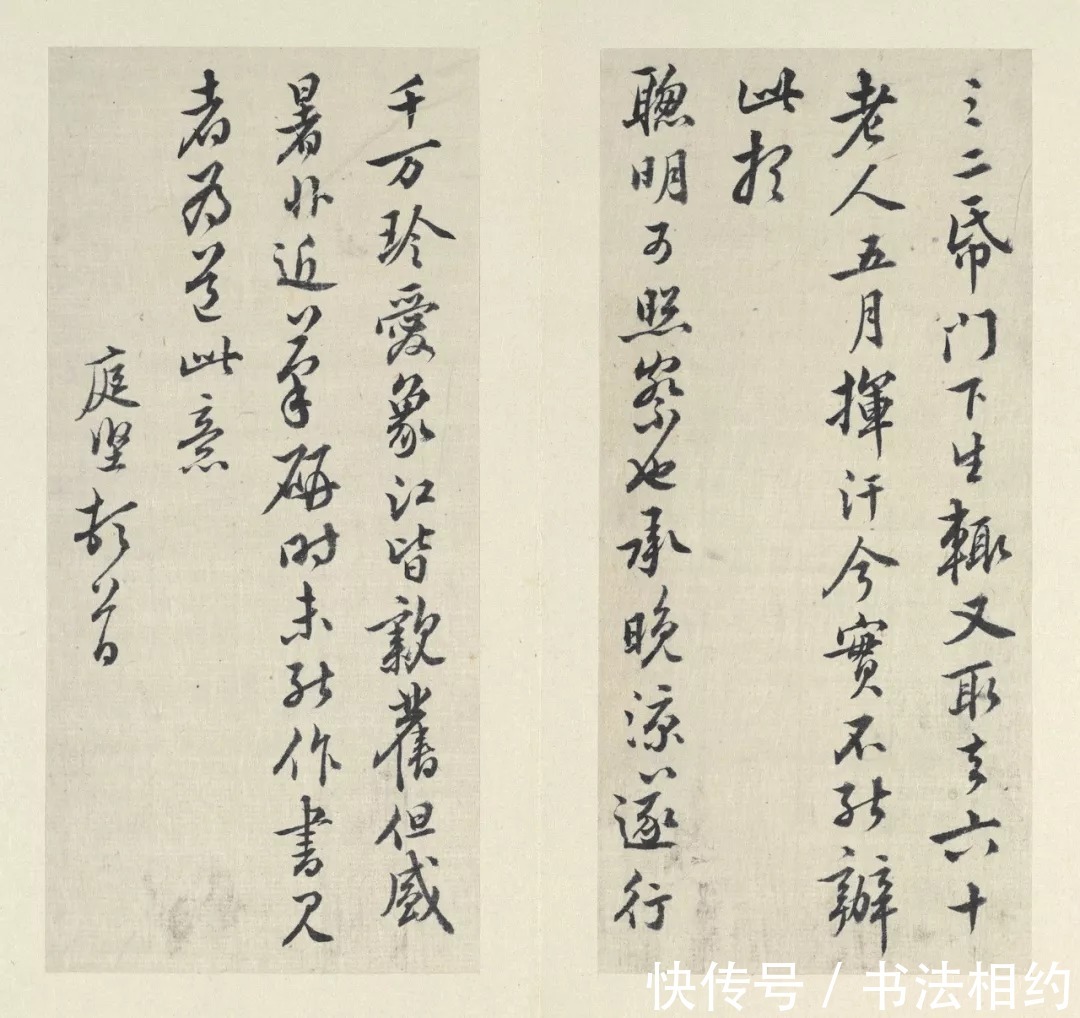 三二帋门下生輒又取去六十
老人五月揮汗今實不能辦
此想
聰明可照察也承晚涼遂行
千万珍愛象江皆親舊但盛
暑非近筆研時未能作書見
者為道此意
庭堅頓首
快传号 / 书法相约